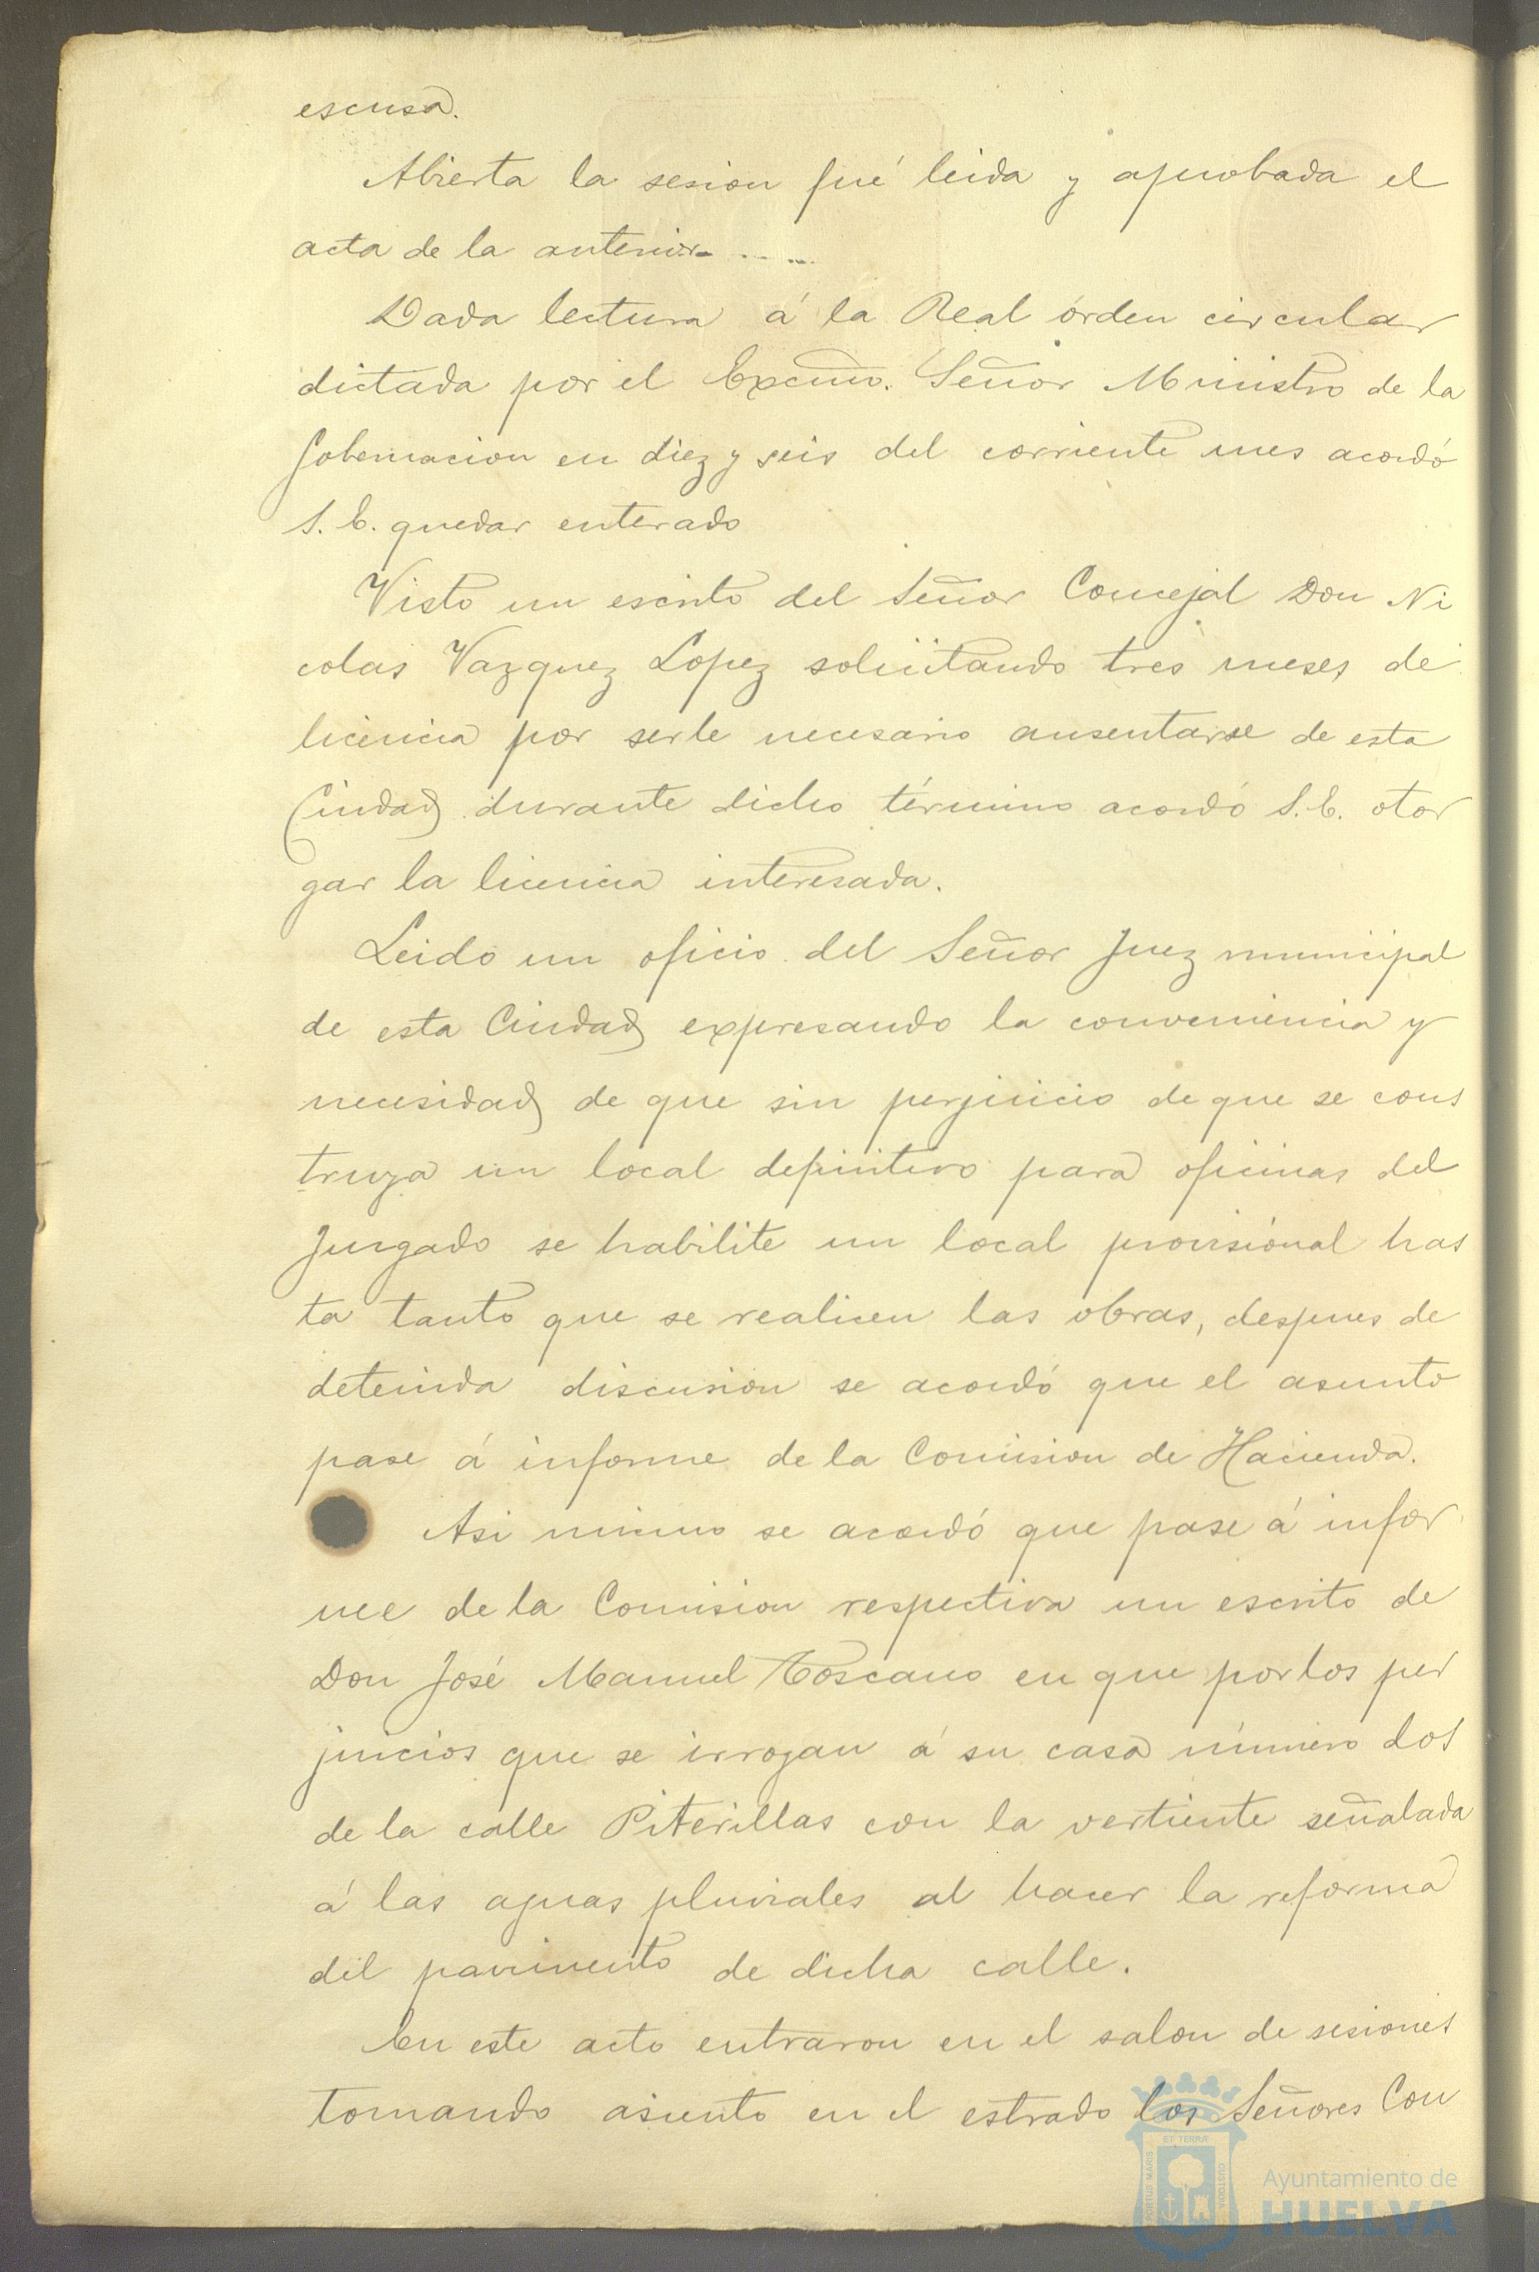 escusa.
Abierta la sesion fué leida y aprobada el
acta de la anterior- .. ...
Dada lectura á la Real órden circular
dictada por el Excmo. Señor Ministro de la
Gobernacion en diez y seis del corriente mes acordó
S. E. quedar enterado
Visto un escrito del Señor Concejal Don Ni
colas Vazquez Lopez solicitando tres meses de
licencia por serle necesario ausentarse de esta
Ciudad durante dicho término acordó S. E. otor
gar la licencia interesada.
Leido un oficio del Señor Juez municipal
de esta Ciudad expresando la conveniencia y
necesidad de que sin perjuicio de que se cons
truya un local definitivo para oficinas del
Juzgado se habilite un local provisional has
ta tanto que se realicen las obras, despues de
detenida discusion se acordó que el asunto
pase á informe de la Comision de Hacienda.
Asi mismo se acordó que pase á infor
me de la Comision respectiva un escrito de
Don José Manuel Toscano en que por los per
juicios que se irrogan á su casa número dos
de la calle Piterillas con la vertiente señalada
á las aguas pluviales al hacer la reforma
del pavimento de dicha calle.
En este acto entraron en el salon de sesiones
tomando asiento en el estrado los Señores Con
PORTUS MARIS ET TERRÆ CUSTODIA
Ayuntamiento de
HUELVA